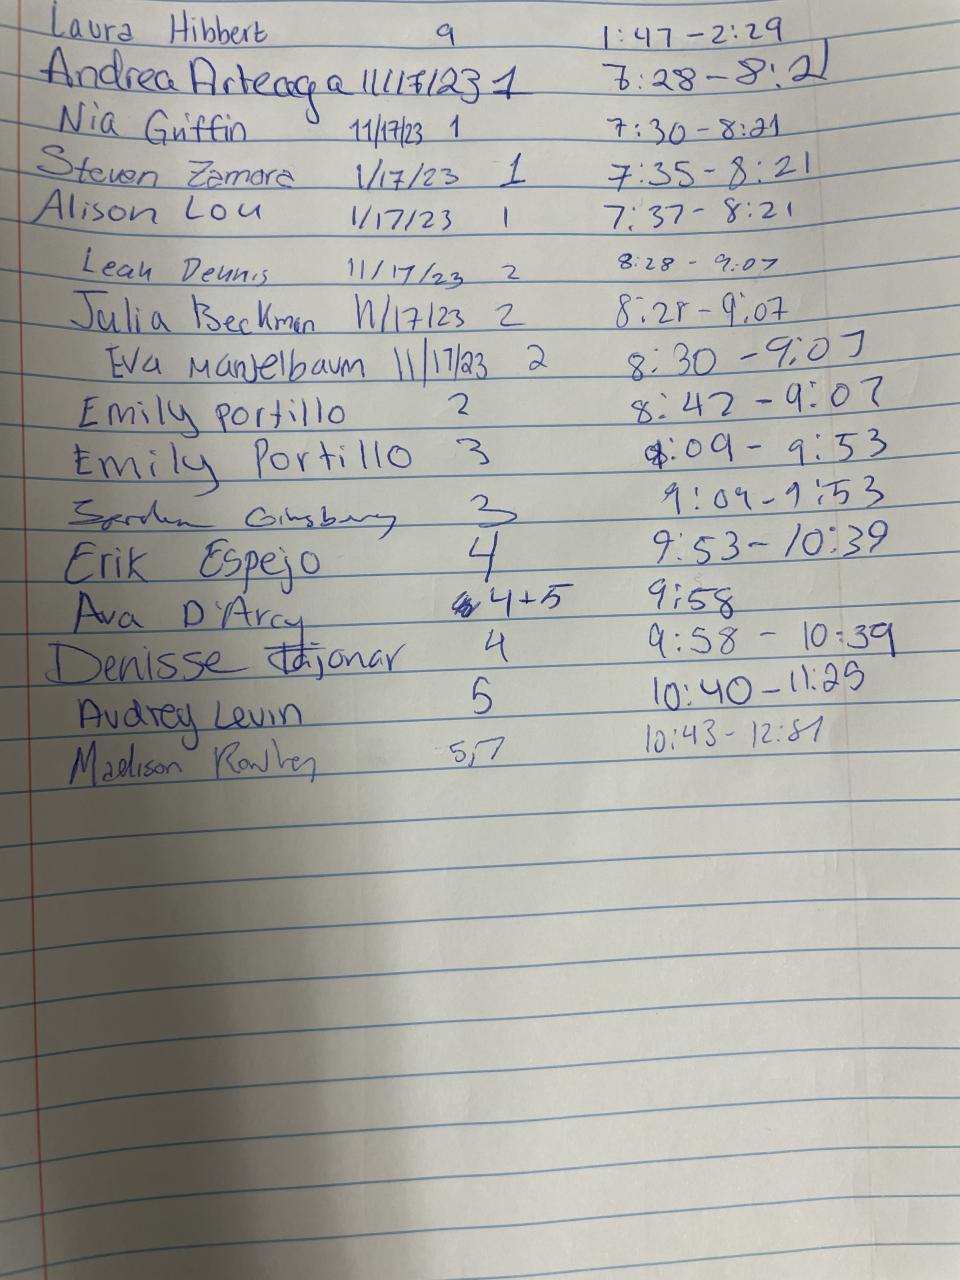 Laura Hibbert 9 1:47-2:29
Andrea Arteaga 11/17/23 1 7:28-8:21
Nia Griffin 11/17/23 1 7:30-8:21
Steven Zamora 1/17/23 1 7:35-8:21
Alison Lou 1/17/23 1 7:37-8:21
Leah Dennis 11/17/23 2 8:28-9:07
Julia Beckman 11/17/23 2 8:28-9:07
Eva Mandelbaum 11/17/23 2 8:30-9:07
Emily Portillo 2 8:42-9:07
Emily Portillo 3 9:09-9:53
Ginsberg 3 9:09-9:53
Erik Espejo 4 9:53-10:39
Ava D'Arcy 4+5 9:58
Denisse 4 9:58-10:39
Audrey Levin 5 10:40-11:25
Madison Rowley 5,7 10:43-12:51